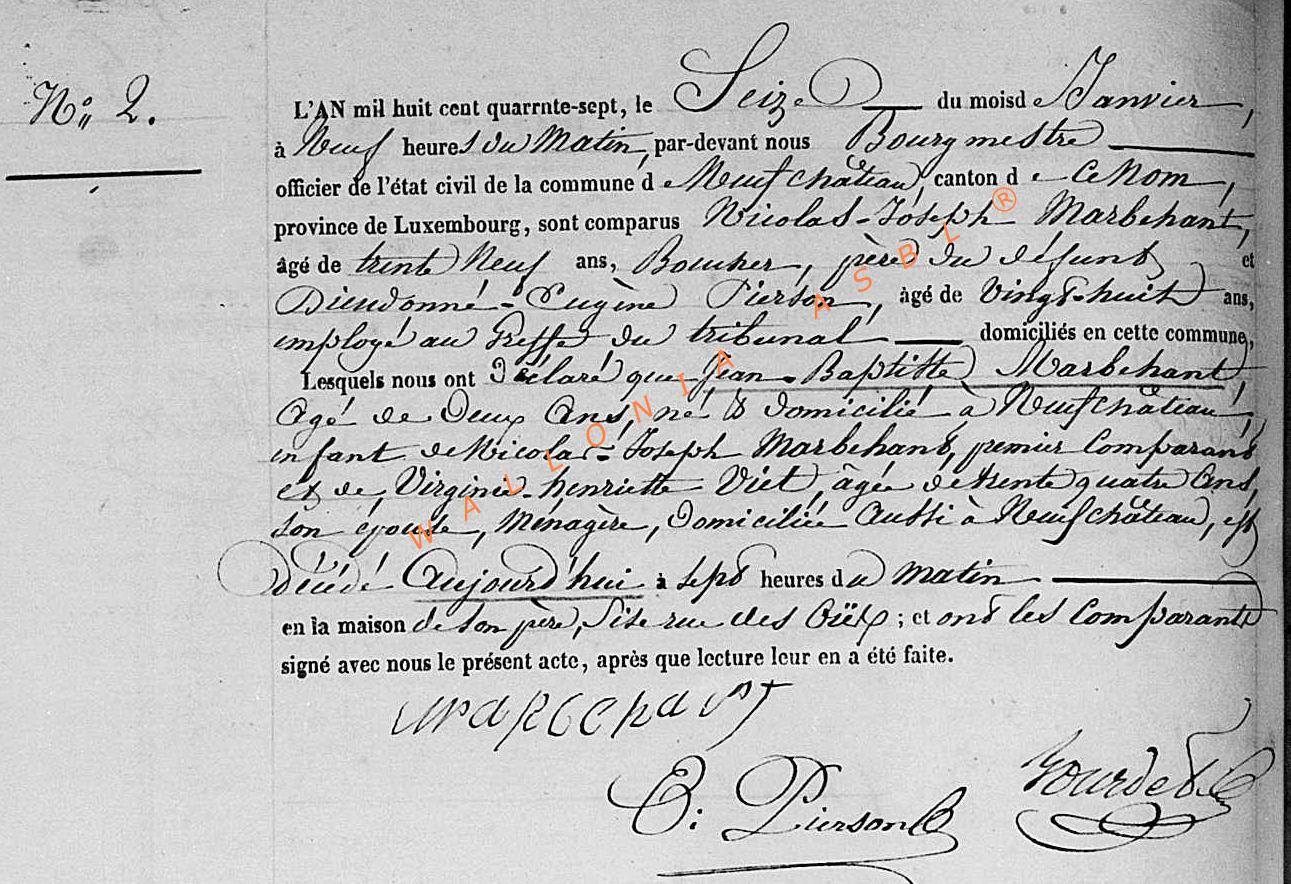 N° 2.
L'AN mil huit cent quarrnte-sept, le Seize du moisd e Janvier,
à Neuf heures du Matin, par-devant nous Bourgmestre
officier de l'état civil de la commune d e Neufchâteau, canton d e Ce Nom,
province de Luxembourg, sont comparus Nicolas-Joseph Marbehant,
âgé de trente Neuf ans, père du défunt et
Dieudonné-Eugène Pierson, âgé de Vingt-huit ans,
employé au Greffe du tribunal domiciliés en cette commune,
Lesquels nous ont Déclaré que Jean-Baptiste Marbehant,
Agé de Deux Ans, né & domicilié à Neufchâteau,
enfant de Nicolas-Joseph Marbehant, premier Comparant
et de Virginie-henriette Viet, âgée de trente quatre Ans,
son épouse, Ménagère, Domiciliée Aussi à Neufchâteau, est
décédé Aujourd'hui à sept heures du matin
en la maison de son père, Sise rue des ; et ont les Comparants
signé avec nous le présent acte, après que lecture leur en a été faite.
marbehant
E. Pierson
WALLONIA ASBL ®